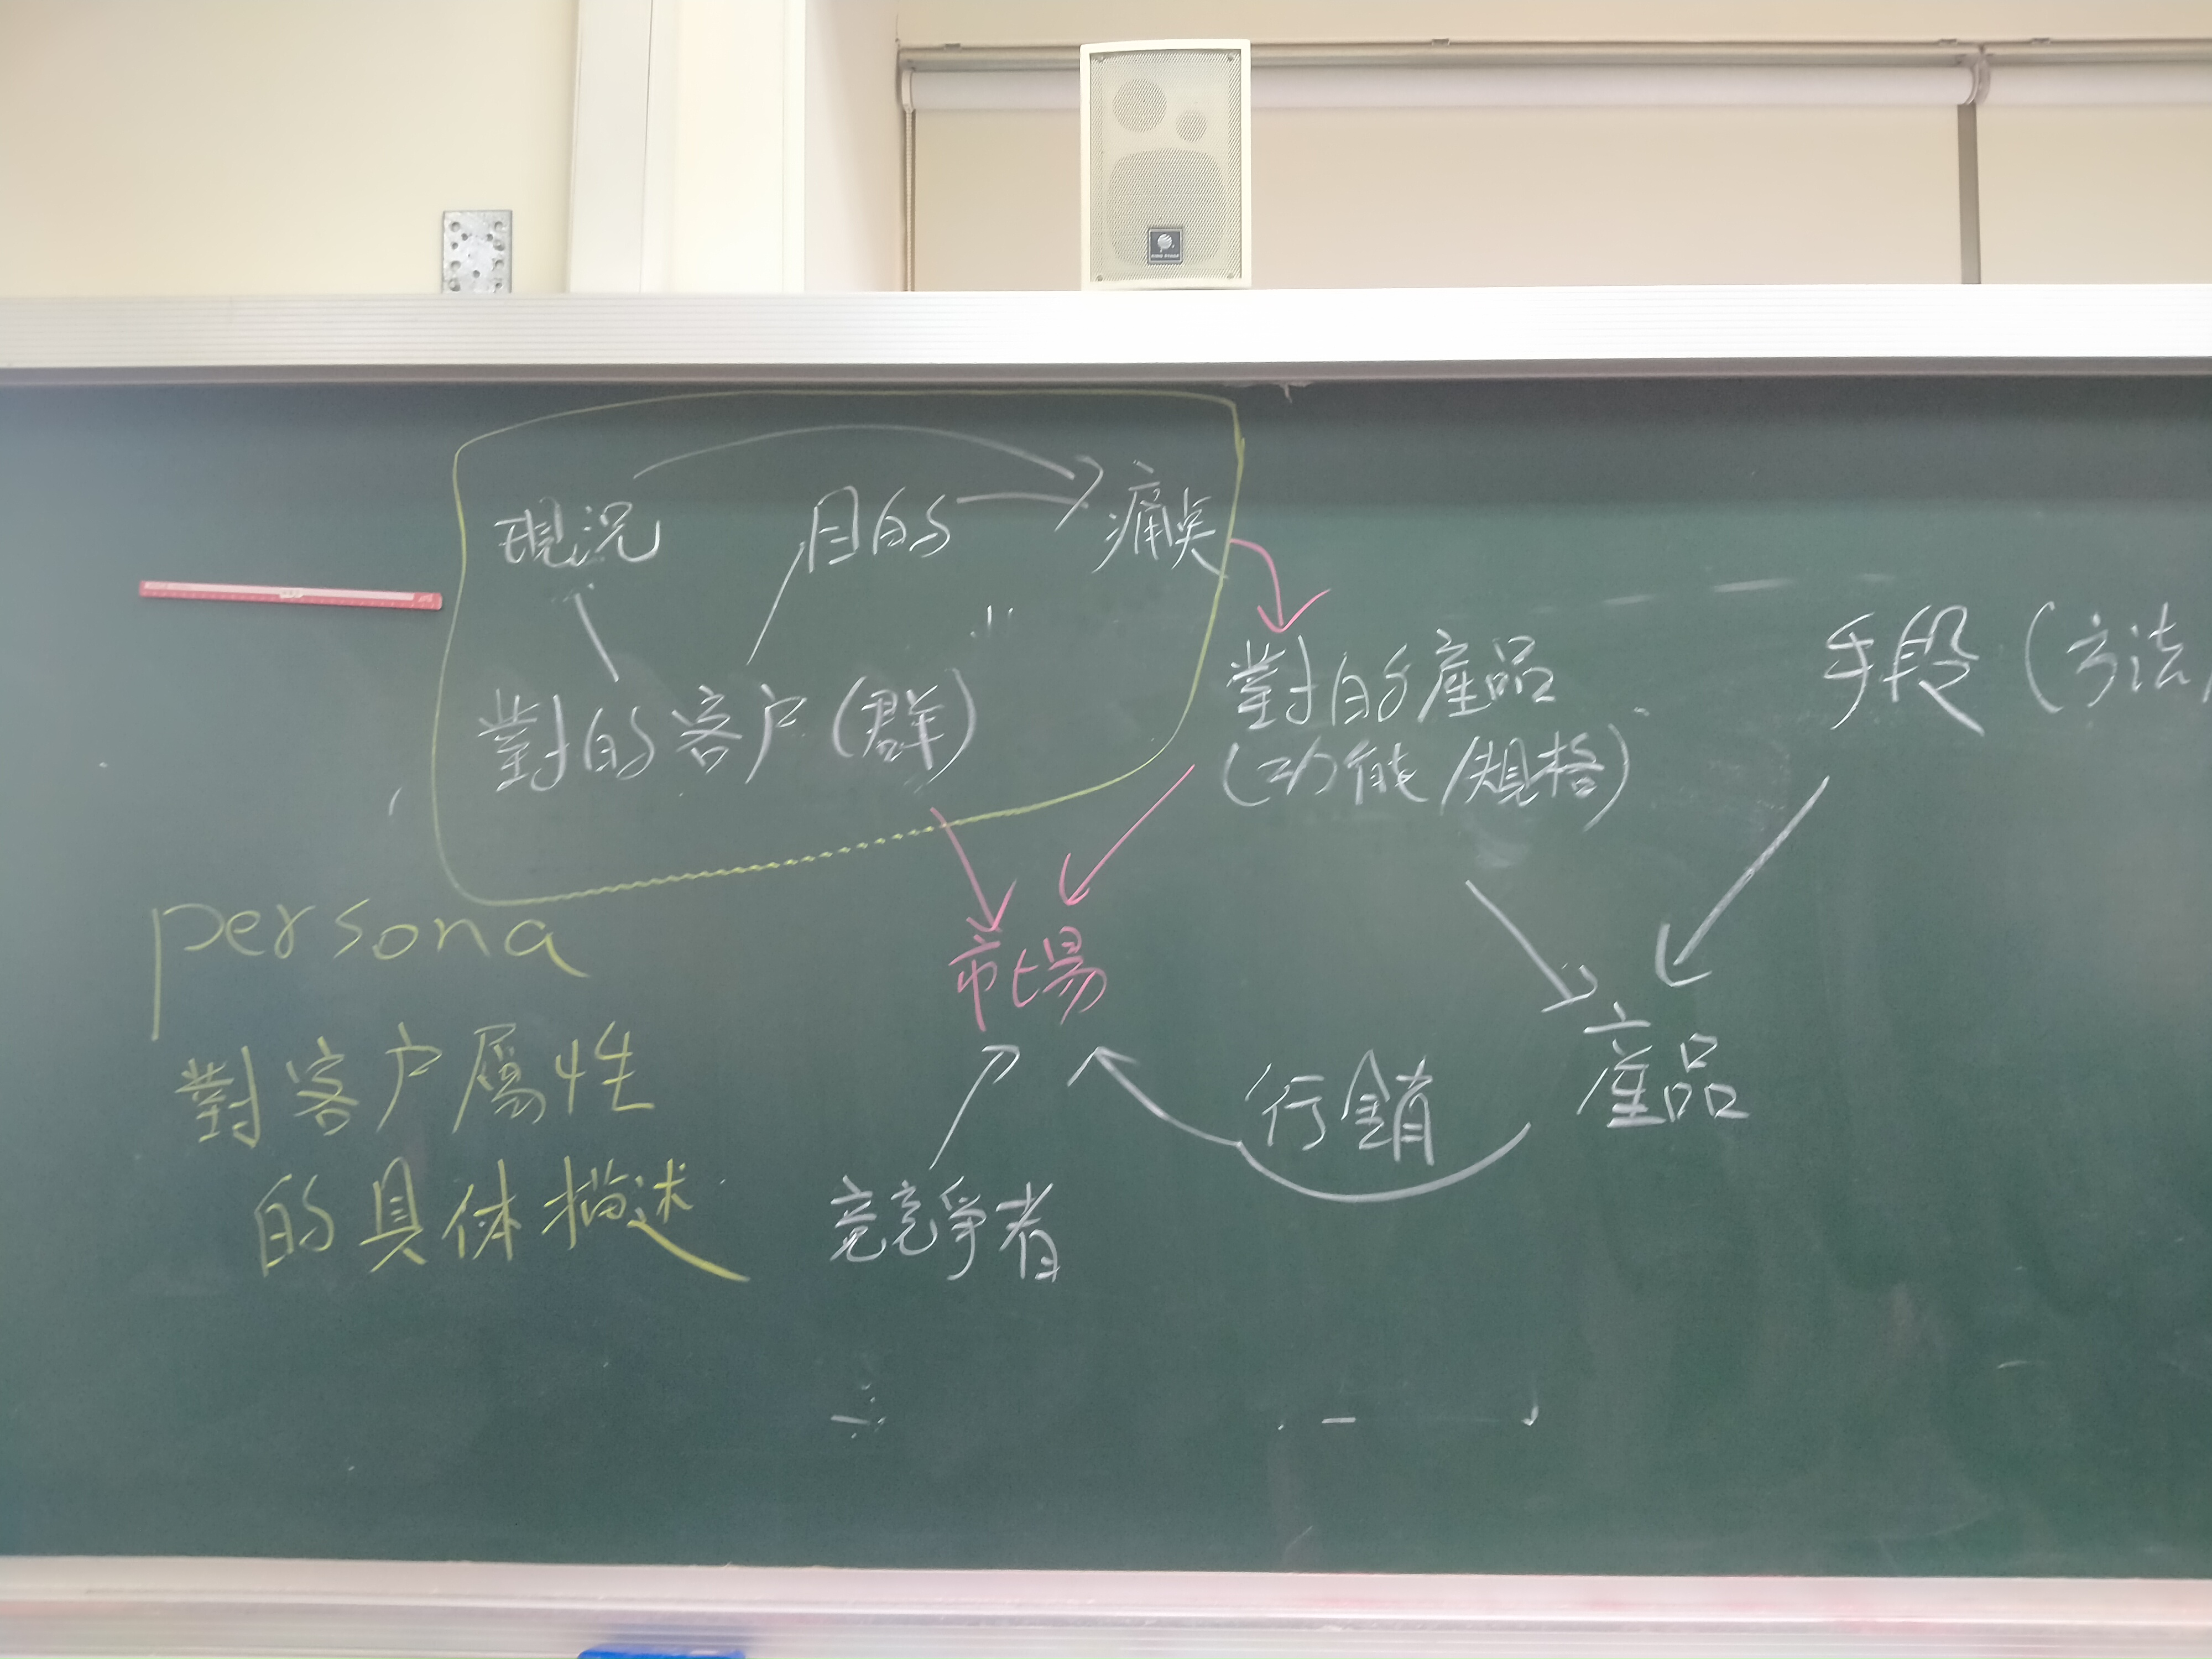 現況 目的 痛点
對的客户(群)
對的產品
(功能/規格)
手段(方法
persona
市場
對客户屬性
的具体描述
行銷
產品
競爭者